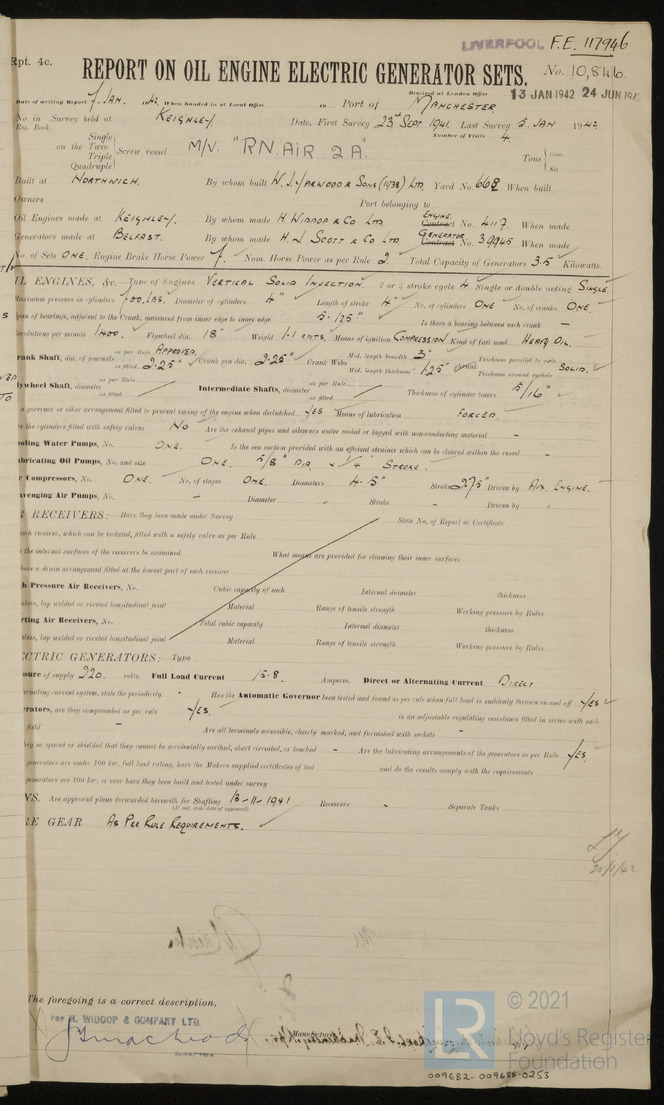 LIVERPOOL F.E. 117946
Rpt. 4c.
REPORT ON OIL ENGINE ELECTRIC GENERATOR SETS. No. 10,846.
Received at London Office 13 JAN 1942 24 JUN
Date of writing Report 7 JAN. 1942 When handed in at Local Office 19 Port of MANCHESTER
No. in Survey held at KEIGHLEY Date, First Survey 23rd SEPT 1941. Last Survey 5 JAN 1942
Reg. Book. Number of Visits 4.
Single
on the Twin Screw vessel M/V. "R.N. AIR 2A" Tons Gross
Triple
Quadruple Net
Built at NORTHWICH. By whom built W. J. YARWOOD & SONS (1938) LTD. Yard No. 668 When built
Owners Port belonging to
Oil Engines made at KEIGHLEY. By whom made H. WIDDOP & CO LTD. ENGINE Contract No. 4117. When made
Generators made at BELFAST. By whom made H. J SCOTT & CO LTD GENERATOR Contract No. 39945 When made
No. of Sets ONE. Engine Brake Horse Power 7. Nom. Horse Power as per Rule 2. Total Capacity of Generators 3.5 Kilowatts.
IL ENGINES, &c.—Type of Engines VERTICAL SOLID INJECTION. 2 or 4 stroke cycle 4 Single or double acting SINGLE
Maximum pressure in cylinders 700 LBS. Diameter of cylinders 4" Length of stroke 4" No. of cylinders ONE No. of cranks ONE.
Span of bearings, adjacent to the Crank, measured from inner edge to inner edge 5.125" Is there a bearing between each crank -
Revolutions per minute 1400. Flywheel dia. 18" Weight 1.1 CWTS. Means of ignition COMPRESSION. Kind of fuel used HEAVY OIL.
Crank Shaft, dia. of journals as per Rule APPROVED. as fitted 2.25" Crank pin dia. 2.25" Crank Webs Mid. length breadth 3" Mid. length thickness 1.25" Thickness parallel to axis SOLID. Thickness around eyehole
lywheel Shaft, diameter as per Rule as fitted Intermediate Shafts, diameter as per Rule as fitted Thickness of cylinder liners 5/16"
a governor or other arrangement fitted to prevent racing of the engine when declutched YES Means of lubrication FORCED.
re the cylinders fitted with safety valves NO Are the exhaust pipes and silencers water cooled or lagged with non-conducting material -
ooling Water Pumps, No. ONE. Is the sea suction provided with an efficient strainer which can be cleared within the vessel -
ubricating Oil Pumps, No. and size ONE. 5/8" DIA. x 1/4" STROKE.
r Compressors, No. ONE. No. of stages ONE. Diameters 4.5" Stroke 2.75" Driven by AUX. ENGINE.
avenging Air Pumps, No. - Diameter Stroke Driven by -
R RECEIVERS:—Have they been made under Survey State No. of Report or Certificate
each receiver, which can be isolated, fitted with a safety valve as per Rule
the internal surfaces of the receivers be examined What means are provided for cleaning their inner surfaces
have a drain arrangement fitted at the lowest part of each receiver
h Pressure Air Receivers, No. Cubic capacity of each Internal diameter thickness
mless, lap welded or riveted longitudinal joint Material Range of tensile strength Working pressure by Rules
rting Air Receivers, No. Total cubic capacity Internal diameter thickness
mless, lap welded or riveted longitudinal joint Material Range of tensile strength Working pressure by Rules
CTRIC GENERATORS:—Type
ssure of supply 220. volts. Full Load Current 15.8 Amperes. Direct or Alternating Current DIRECT
ernating current system, state the periodicity - Has the Automatic Governor been tested and found as per rule when full load is suddenly thrown on and off YES
erators, are they compounded as per rule YES. is an adjustable regulating resistance fitted in series with each
field - Are all terminals accessible, clearly marked, and furnished with sockets -
ey so spaced or shielded that they cannot be accidentally earthed, short circuited, or touched - Are the lubricating arrangements of the generators as per Rule YES.
generators are under 100 kw. full load rating, have the Makers supplied certificates of test and do the results comply with the requirements
generators are 100 kw. or over have they been built and tested under survey
NS. Are approved plans forwarded herewith for Shafting 13-11-1941 Receivers - Separate Tanks
(If not, state date of approval)
RE GEAR AS PER RULE REQUIREMENTS.
20/1/42
The foregoing is a correct description,
FOR H. WIDDOP & COMPANY LTD.
Manufacturer.
LR © 2021
Lloyd's Register
Foundation
009682-009688-0253